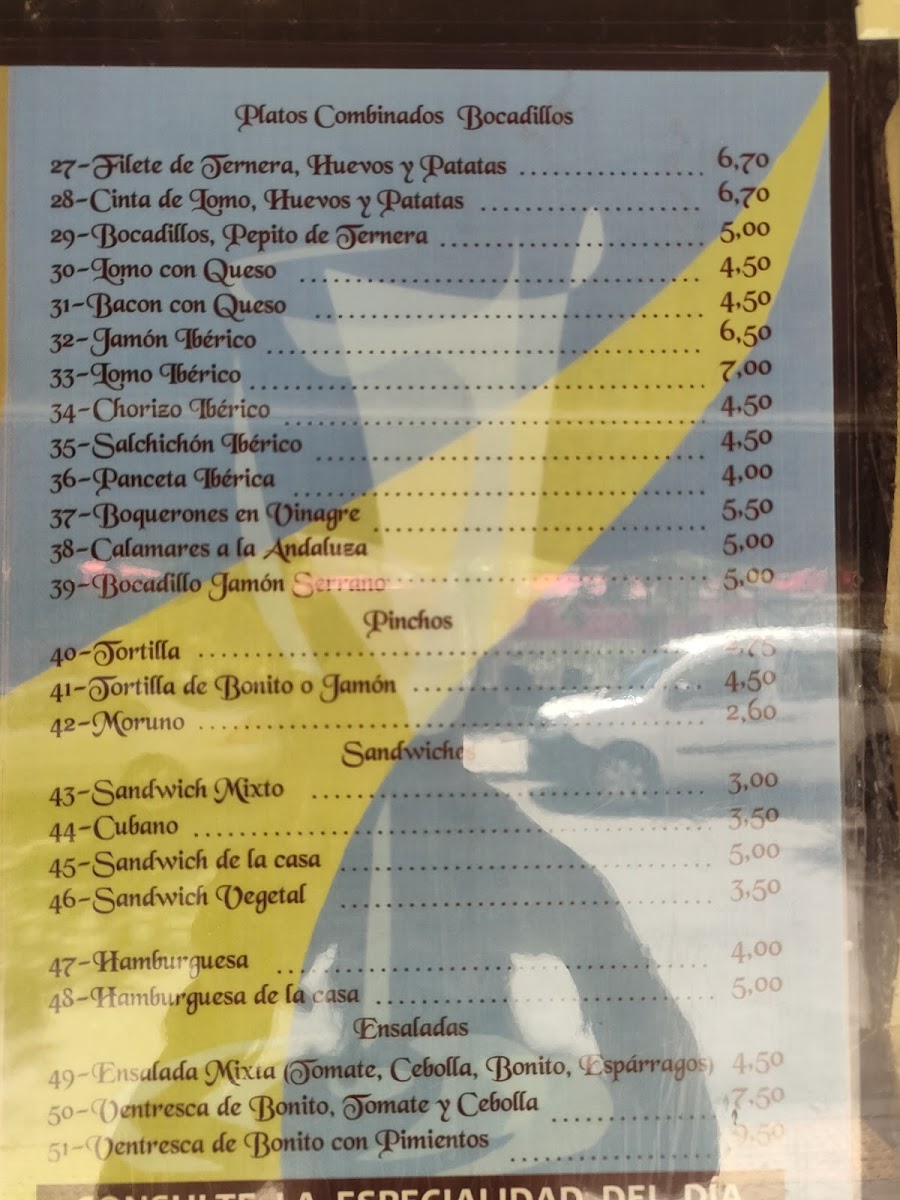 Platos Combinados Bocadillos
27-Filete de Ternera, Huevos y Patatas ........ 6,70
28-Cinta de Lomo, Huevos y Patatas ........ 6,70
29-Bocadillos, Pepito de Ternera ........ 5,00
30-Lomo con Queso ........ 4,50
31-Bacon con Queso ........ 4,50
32-Jamón Ibérico ........ 6,50
33-Lomo Ibérico ........ 7,00
34-Chorizo Ibérico ........ 4,50
35-Salchichón Ibérico ........ 4,50
36-Panceta Ibérica ........ 4,00
37-Boquerones en Vinagre ........ 5,50
38-Calamares a la Andaluza 5,00
39-Bocadillo Jamón Serrano ........ 5,00
Pinchos
40-Tortilla ........
41-Tortilla de Bonito o Jamón ........ 4,50
42-Moruno ........ 2,60
Sandwiches
43-Sandwich Mixto ........ 3,00
44-Cubano ........ 3,50
45-Sandwich de la casa ........ 5,00
46-Sandwich Vegetal ........ 3,50
47-Hamburguesa ........ 4,00
48-Hamburguesa de la casa ........ 5,00
Ensaladas
49-Ensalada Mixta (Tomate, Cebolla, Bonito, Espárragos) 4,50
50-Ventresca de Bonito, Tomate y Cebolla ........ 7,50
51-Ventresca de Bonito con Pimientos ........
CONSULTE LA ESPECIALIDAD DEL DÍA